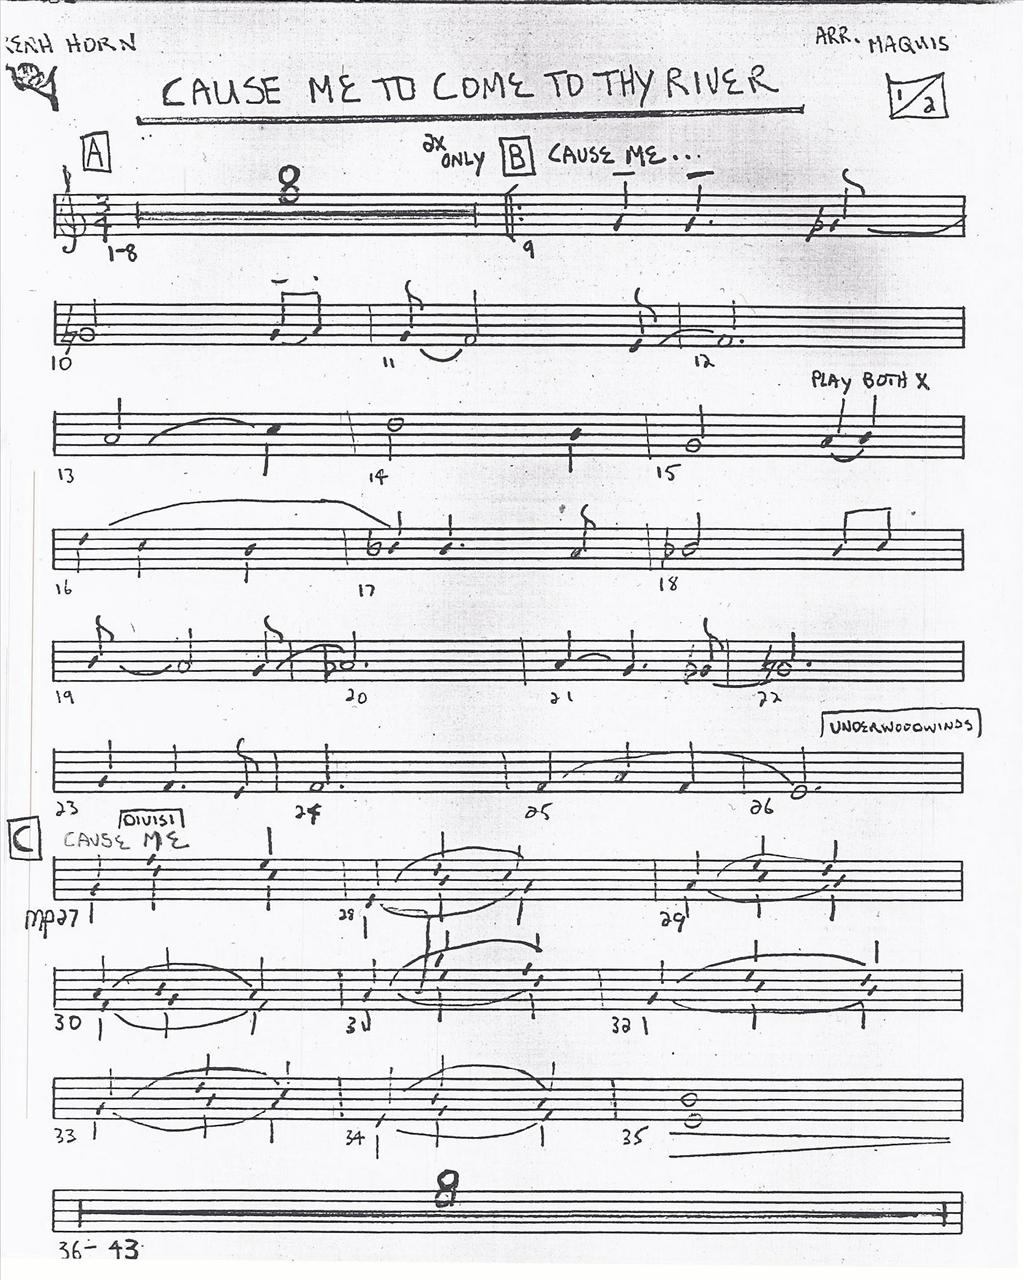 HORN
ARR. MAQUIS
CAUSE ME TO COME TO THY RIVER
1/2
A
2X ONLY B CAUSE ME...
8
3/4
1-8 9
10 11 12
PLAY BOTH X
13 14 15
16 17 18
19 20 21 22
UNDERWOODWINDS
23 24 25 26
C CAUSE ME DIVISI
MP 27 28 29
30 31 32
33 34 35
8
36-43